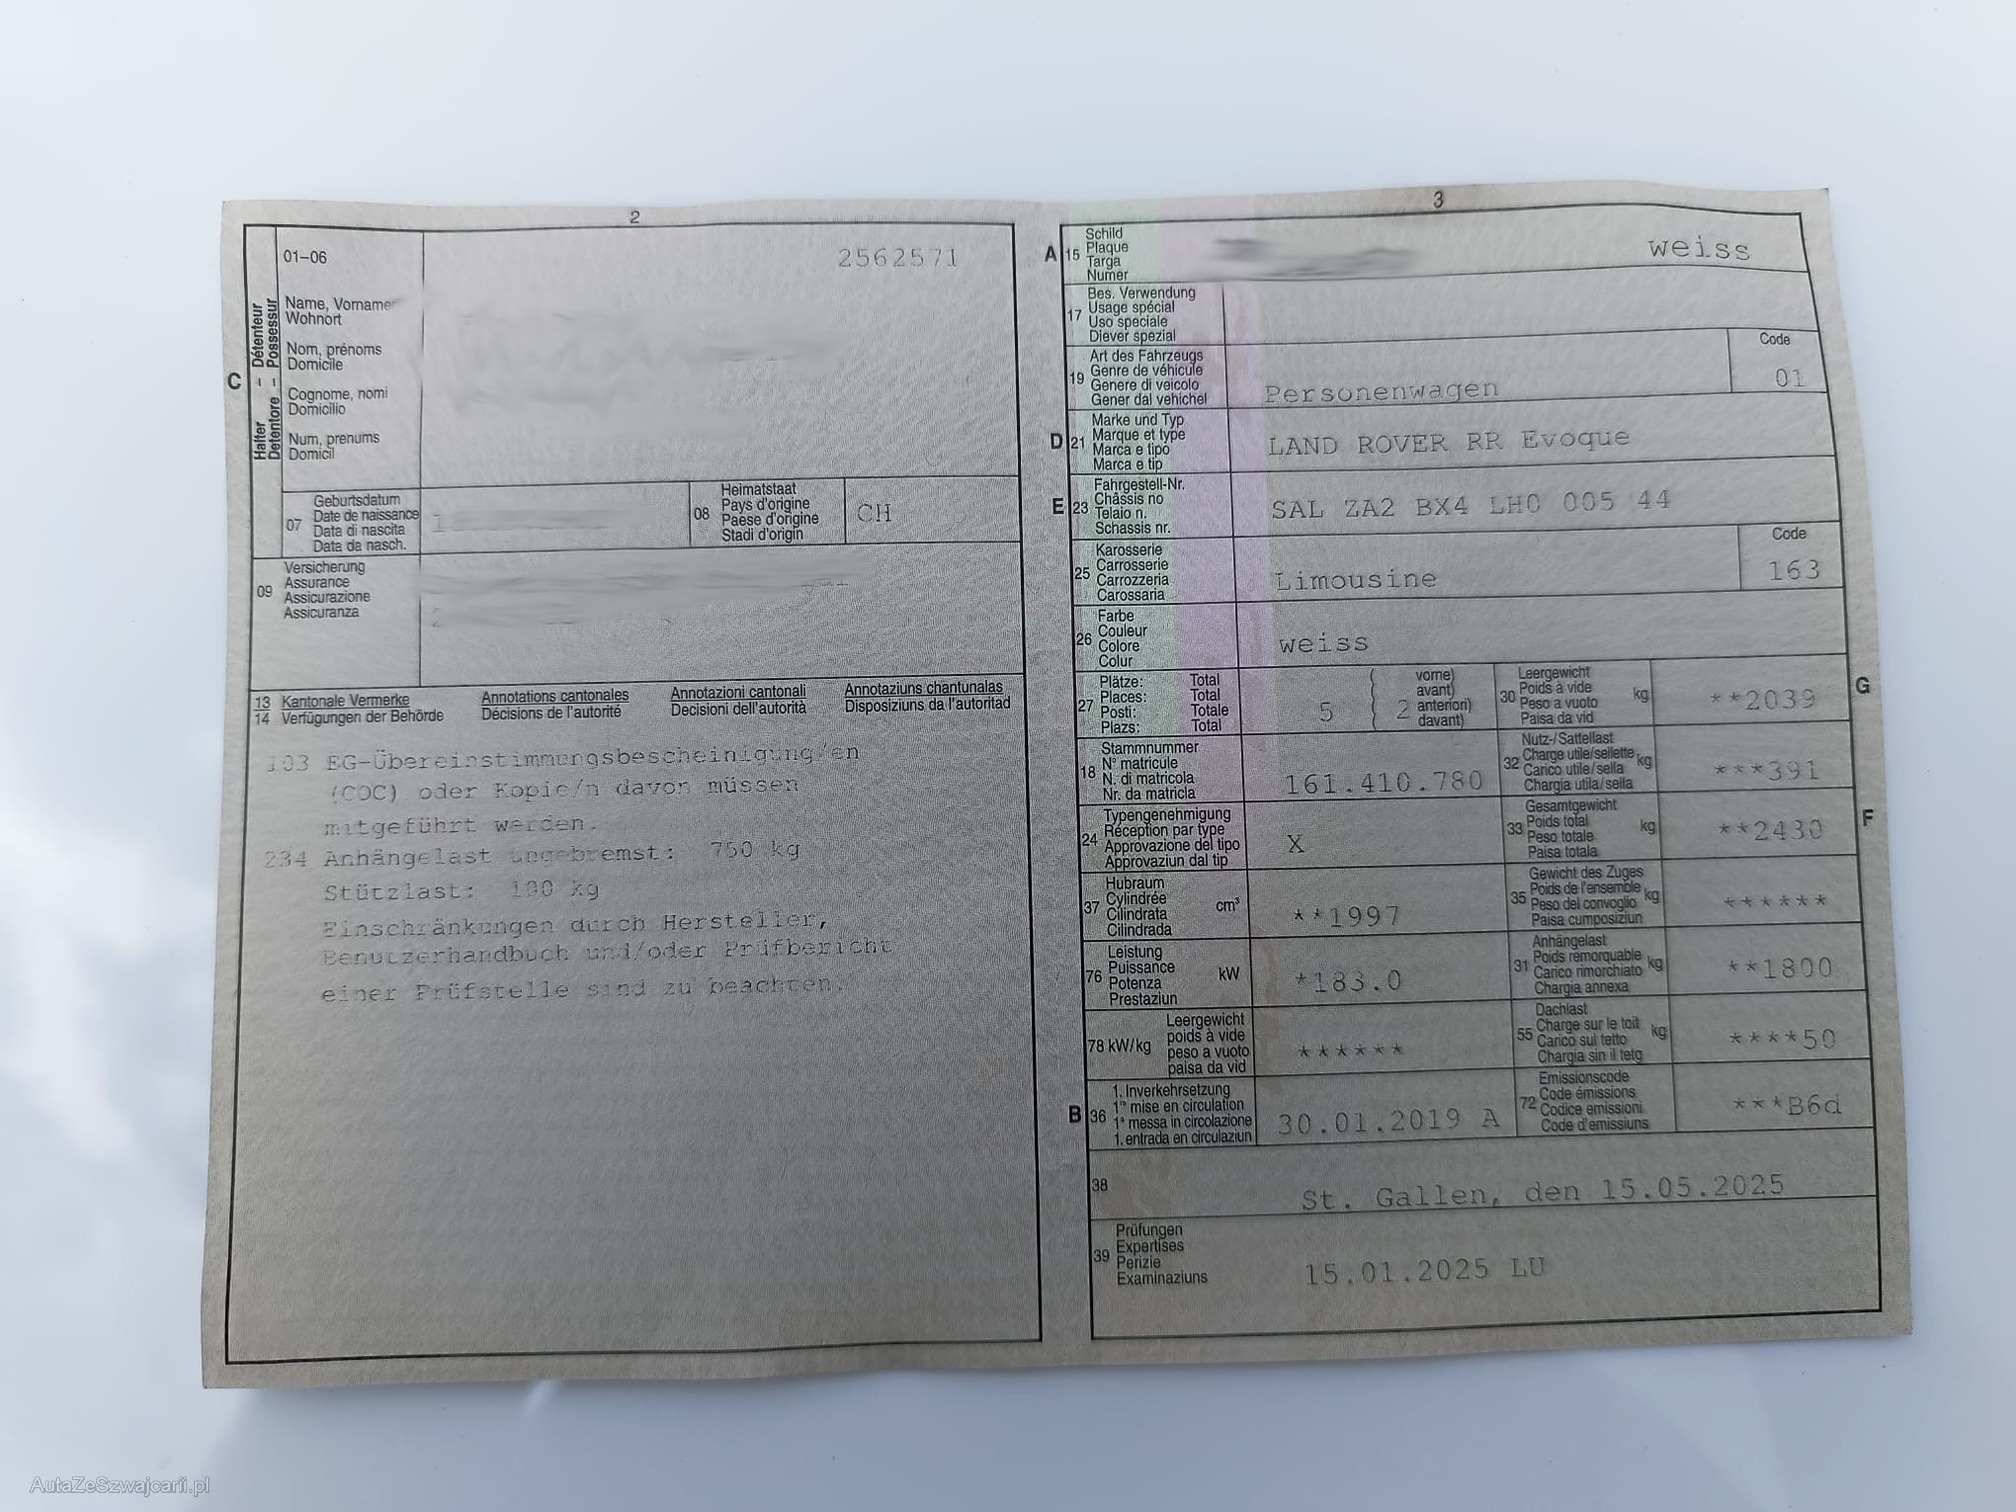 2
01–06
2562571
C
Halter – Détenteur
Detentore – Possessur
Name, Vorname
Wohnort
Nom, prénoms
Domicile
Cognome, nomi
Domicilio
Num, prenums
Domicil
07
Geburtsdatum
Date de naissance
Data di nascita
Data da nasch.
1
08
Heimatstaat
Pays d'origine
Paese d'origine
Stadi d'origin
CH
09
Versicherung
Assurance
Assicurazione
Assicuranza
13 Kantonale Vermerke Annotations cantonales Annotazioni cantonali Annotaziuns chantunalas
14 Verfügungen der Behörde Décisions de l'autorité Decisioni dell'autorità Disposiziuns da l'autoritad
103 EG-Übereinstimmungsbescheinigung/en
(COC) oder Kopie/n davon müssen
mitgeführt werden.
234 Anhängelast ungebremst: 750 kg
Stützlast: 100 kg
Einschränkungen durch Hersteller,
Benutzerhandbuch und/oder Prüfbericht
einer Prüfstelle sind zu beachten.
3
A
15
Schild
Plaque
Targa
Numer
weiss
17
Bes. Verwendung
Usage spécial
Uso speciale
Diever spezial
19
Art des Fahrzeugs
Genre de véhicule
Genere di veicolo
Gener dal vehichel
Personenwagen
Code
01
D
21
Marke und Typ
Marque et type
Marca e tipo
Marca e tip
LAND ROVER RR Evoque
E
23
Fahrgestell-Nr.
Châssis no
Telaio n.
Schassis nr.
SAL ZA2 BX4 LH0 005 44
25
Karosserie
Carrosserie
Carrozzeria
Carossaria
Limousine
Code
163
26
Farbe
Couleur
Colore
Colur
weiss
27
Plätze: Total
Places: Total
Posti: Totale
Plazs: Total
5 { 2
vorne)
avant)
anteriori)
davant)
30
Leergewicht
Poids à vide
Peso a vuoto
Paisa da vid
kg
**2039
G
18
Stammnummer
N° matricule
N. di matricola
Nr. da matricla
161.410.780
32
Nutz-/Sattellast
Charge utile/sellette
Carico utile/sella
Chargia utila/sella
kg
***391
24
Typengenehmigung
Réception par type
Approvazione del tipo
Approvaziun dal tip
X
33
Gesamtgewicht
Poids total
Peso totale
Paisa totala
kg
**2430
F
37
Hubraum
Cylindrée
Cilindrata
Cilindrada
cm³
**1997
35
Gewicht des Zuges
Poids de l'ensemble
Peso del convoglio
Paisa cumposiziun
kg
******
76
Leistung
Puissance
Potenza
Prestaziun
kW
*183.0
31
Anhängelast
Poids remorquable
Carico rimorchiato
Chargia annexa
kg
**1800
78 kW/kg
Leergewicht
poids à vide
peso a vuoto
paisa da vid
******
55
Dachlast
Charge sur le toit
Carico sul tetto
Chargia sin il tetg
kg
****50
B
36
1. Inverkehrsetzung
1re mise en circulation
1a messa in circolazione
1. entrada en circulaziun
30.01.2019 A
72
Emissionscode
Code émissions
Codice emissioni
Code d'emissiuns
***B6d
38
St. Gallen, den 15.05.2025
39
Prüfungen
Expertises
Perizie
Examinaziuns
15.01.2025 LU
AutaZeSzwajcarii.pl